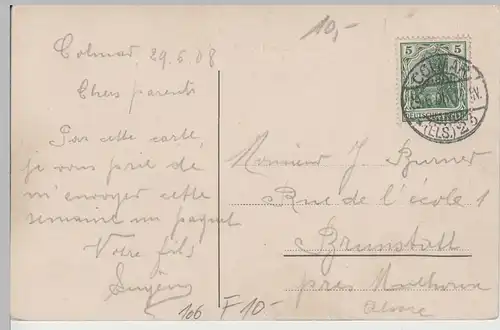 10,-
Colmar, 29.6.08
Chers parents
Par cette carte,
je vous prie de
m'envoyer cette
semaine un paquet
Votre fils
Eugène
5 5
COLMAR
(ELS.) 2
Monsieur J. Burner
Rue de l'école 1
Brunstatt
près Mulhouse
Alsace
106 F 10.-